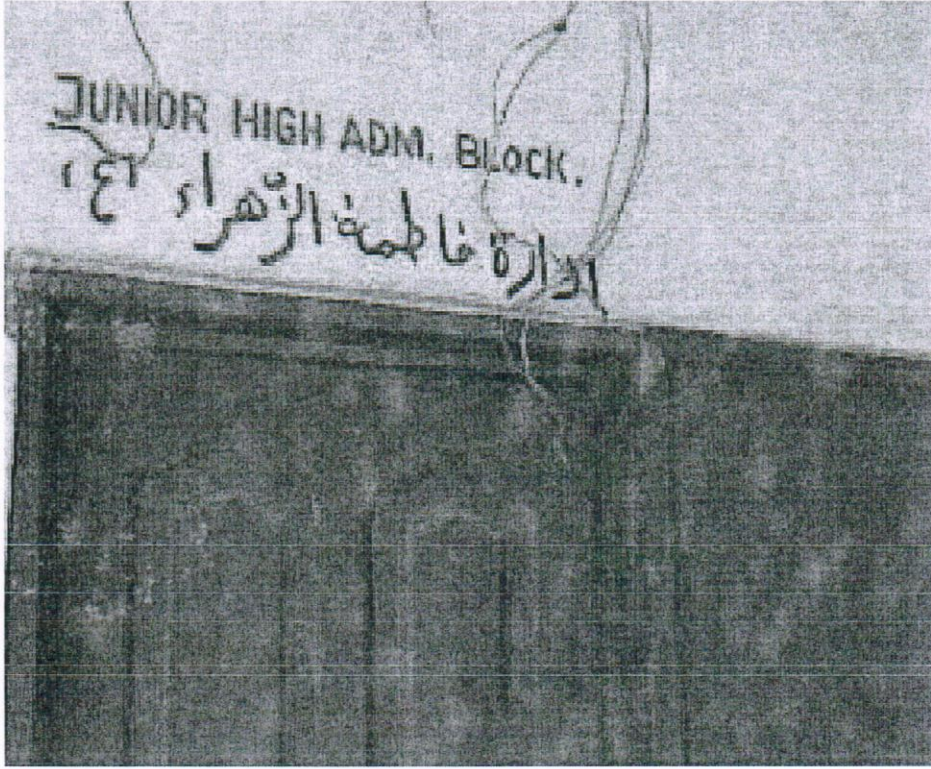 JUNIOR HIGH ADM. BLOCK.
ادارة فاطمة الزّهراء (ع)